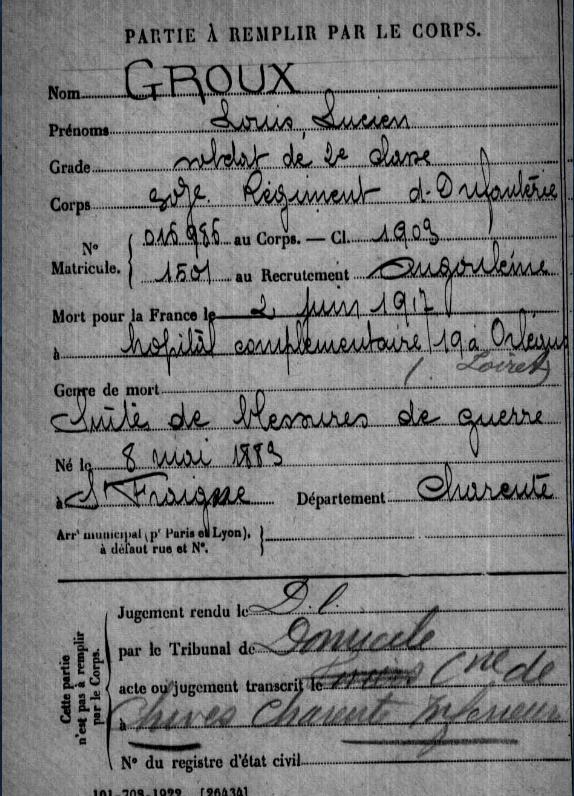 PARTIE À REMPLIR PAR LE CORPS.
Nom GROUX
Prénoms Louis, Lucien
Grade soldat de 2e classe
Corps Régiment d'Infanterie
N° Matricule. { 015985 au Corps. — Cl. 1903
1501 au Recrutement Angoulême
Mort pour la France le 2 juin 1917
à hopital complementaire 19 à Orléans
(Loiret)
Genre de mort
Suite de blessures de guerre
Né le 8 mai 1883
à St Fraigne Département Charente
Arrt municipal (pr Paris et Lyon), à défaut rue et N°. }
Cette partie n'est pas à remplir par le Corps.
Jugement rendu le D.C.
par le Tribunal de Domicile
acte ou jugement transcrit le Cne de
à Chives Charente Inférieure
N° du registre d'état civil
101-708-1922. [26434]